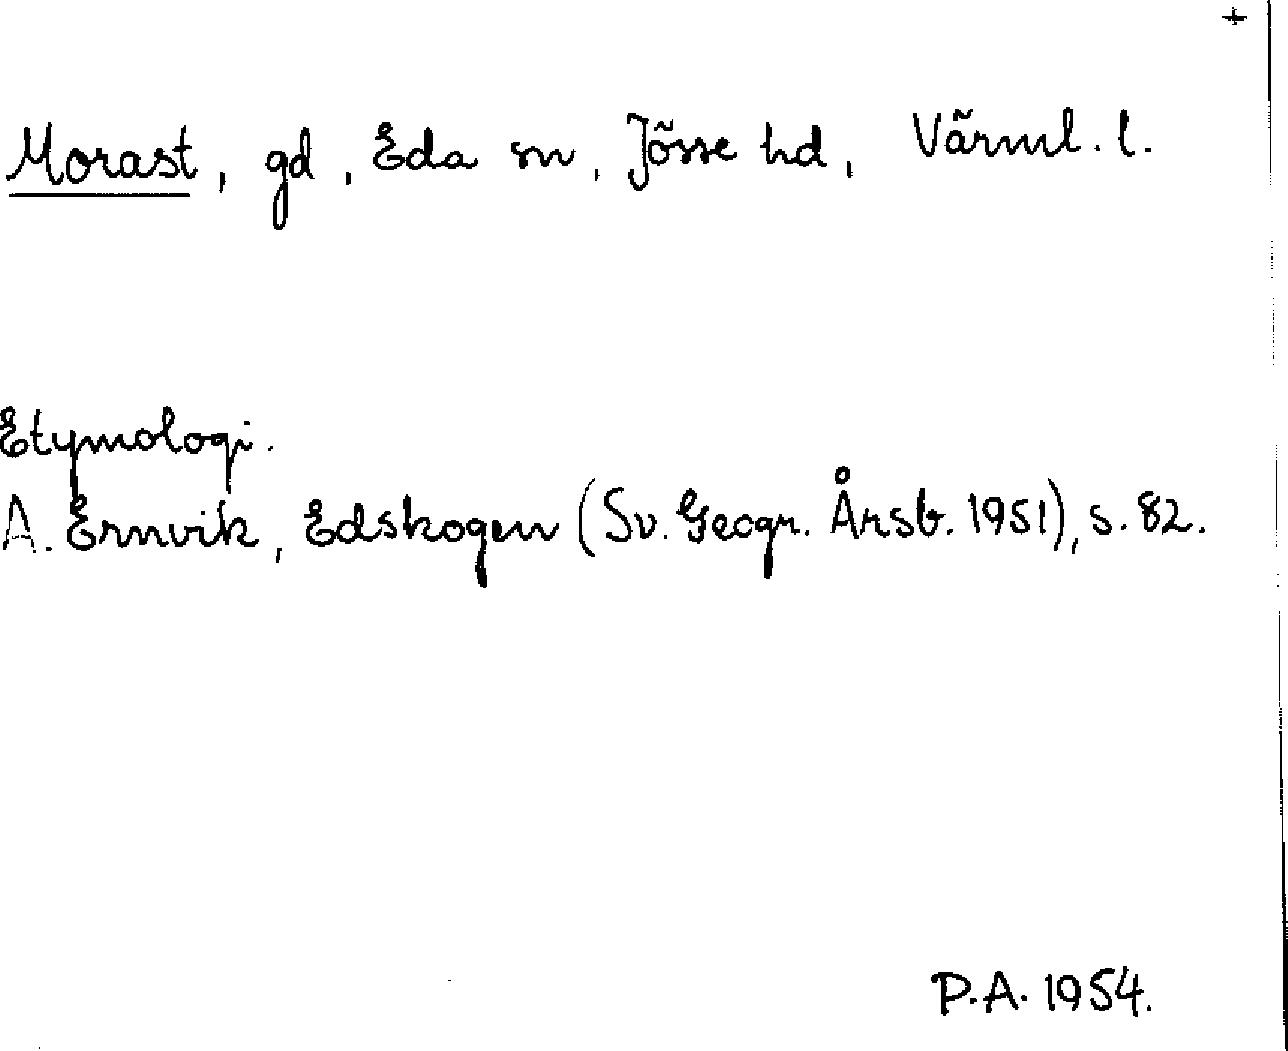 +
Morast, gd, Eda sn, Jösse hd, Värml. l.
Etymologi.
A. Ernvik, Edskogen (Sv. Geogr. Årsb. 1951), s. 82.
P.A. 1954.